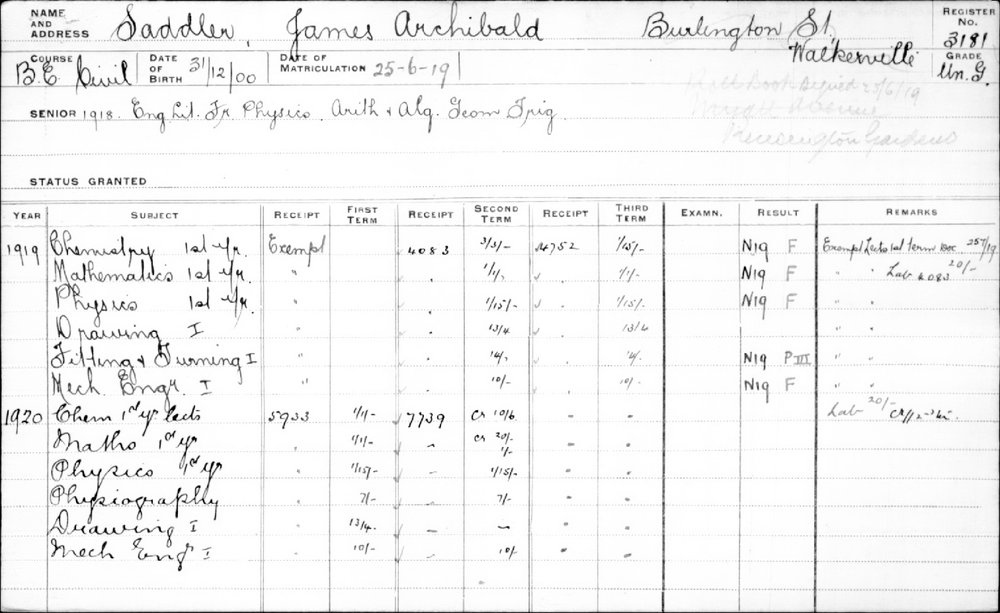 NAME AND ADDRESS Saddler, James Archibald Burlington St. Walkerville REGISTER No. 3181
COURSE B.E. Civil DATE OF BIRTH 31/12/00 DATE OF MATRICULATION 25-6-19 GRADE Un.G.
Roll Book Signed 25/6/19
SENIOR 1918. Eng Lit. Fr. Physics. Arith & Alg. Geom Trig.
Kensington Gardens
STATUS GRANTED
YEAR SUBJECT RECEIPT FIRST TERM RECEIPT SECOND TERM RECEIPT THIRD TERM EXAMN. RESULT REMARKS
1919 Chemistry 1st yr. Exempt 4083 3/3/- 14752 1/15/- N19 F Exempt Lects 1st term Doc. 257/19
Mathematics 1st yr. " . 1/1/- . 1/1/- N19 F " " Lab 4083 20/-
Physics 1st yr. " . 1/15/- . 1/15/- N19 F " "
Drawing I " . 13/4 . 13/4 " "
Fitting & Turning I " . 14/- . 14/- N19 P III " "
Mech. Engr. I " . 10/- . 10/- N19 F " "
1920 Chem 1st yr lects 5933 1/1/- 7739 Cr 10/6 - Lab 20/-
Maths 1st yr . 1/1/- - Cr 20/- 1/- -
Physics 1st yr . 1/15/- - 1/15/- -
Physiography . 7/- - 7/- -
Drawing I . 13/4. - - -
Mech Engr I . 10/- - 10/- -